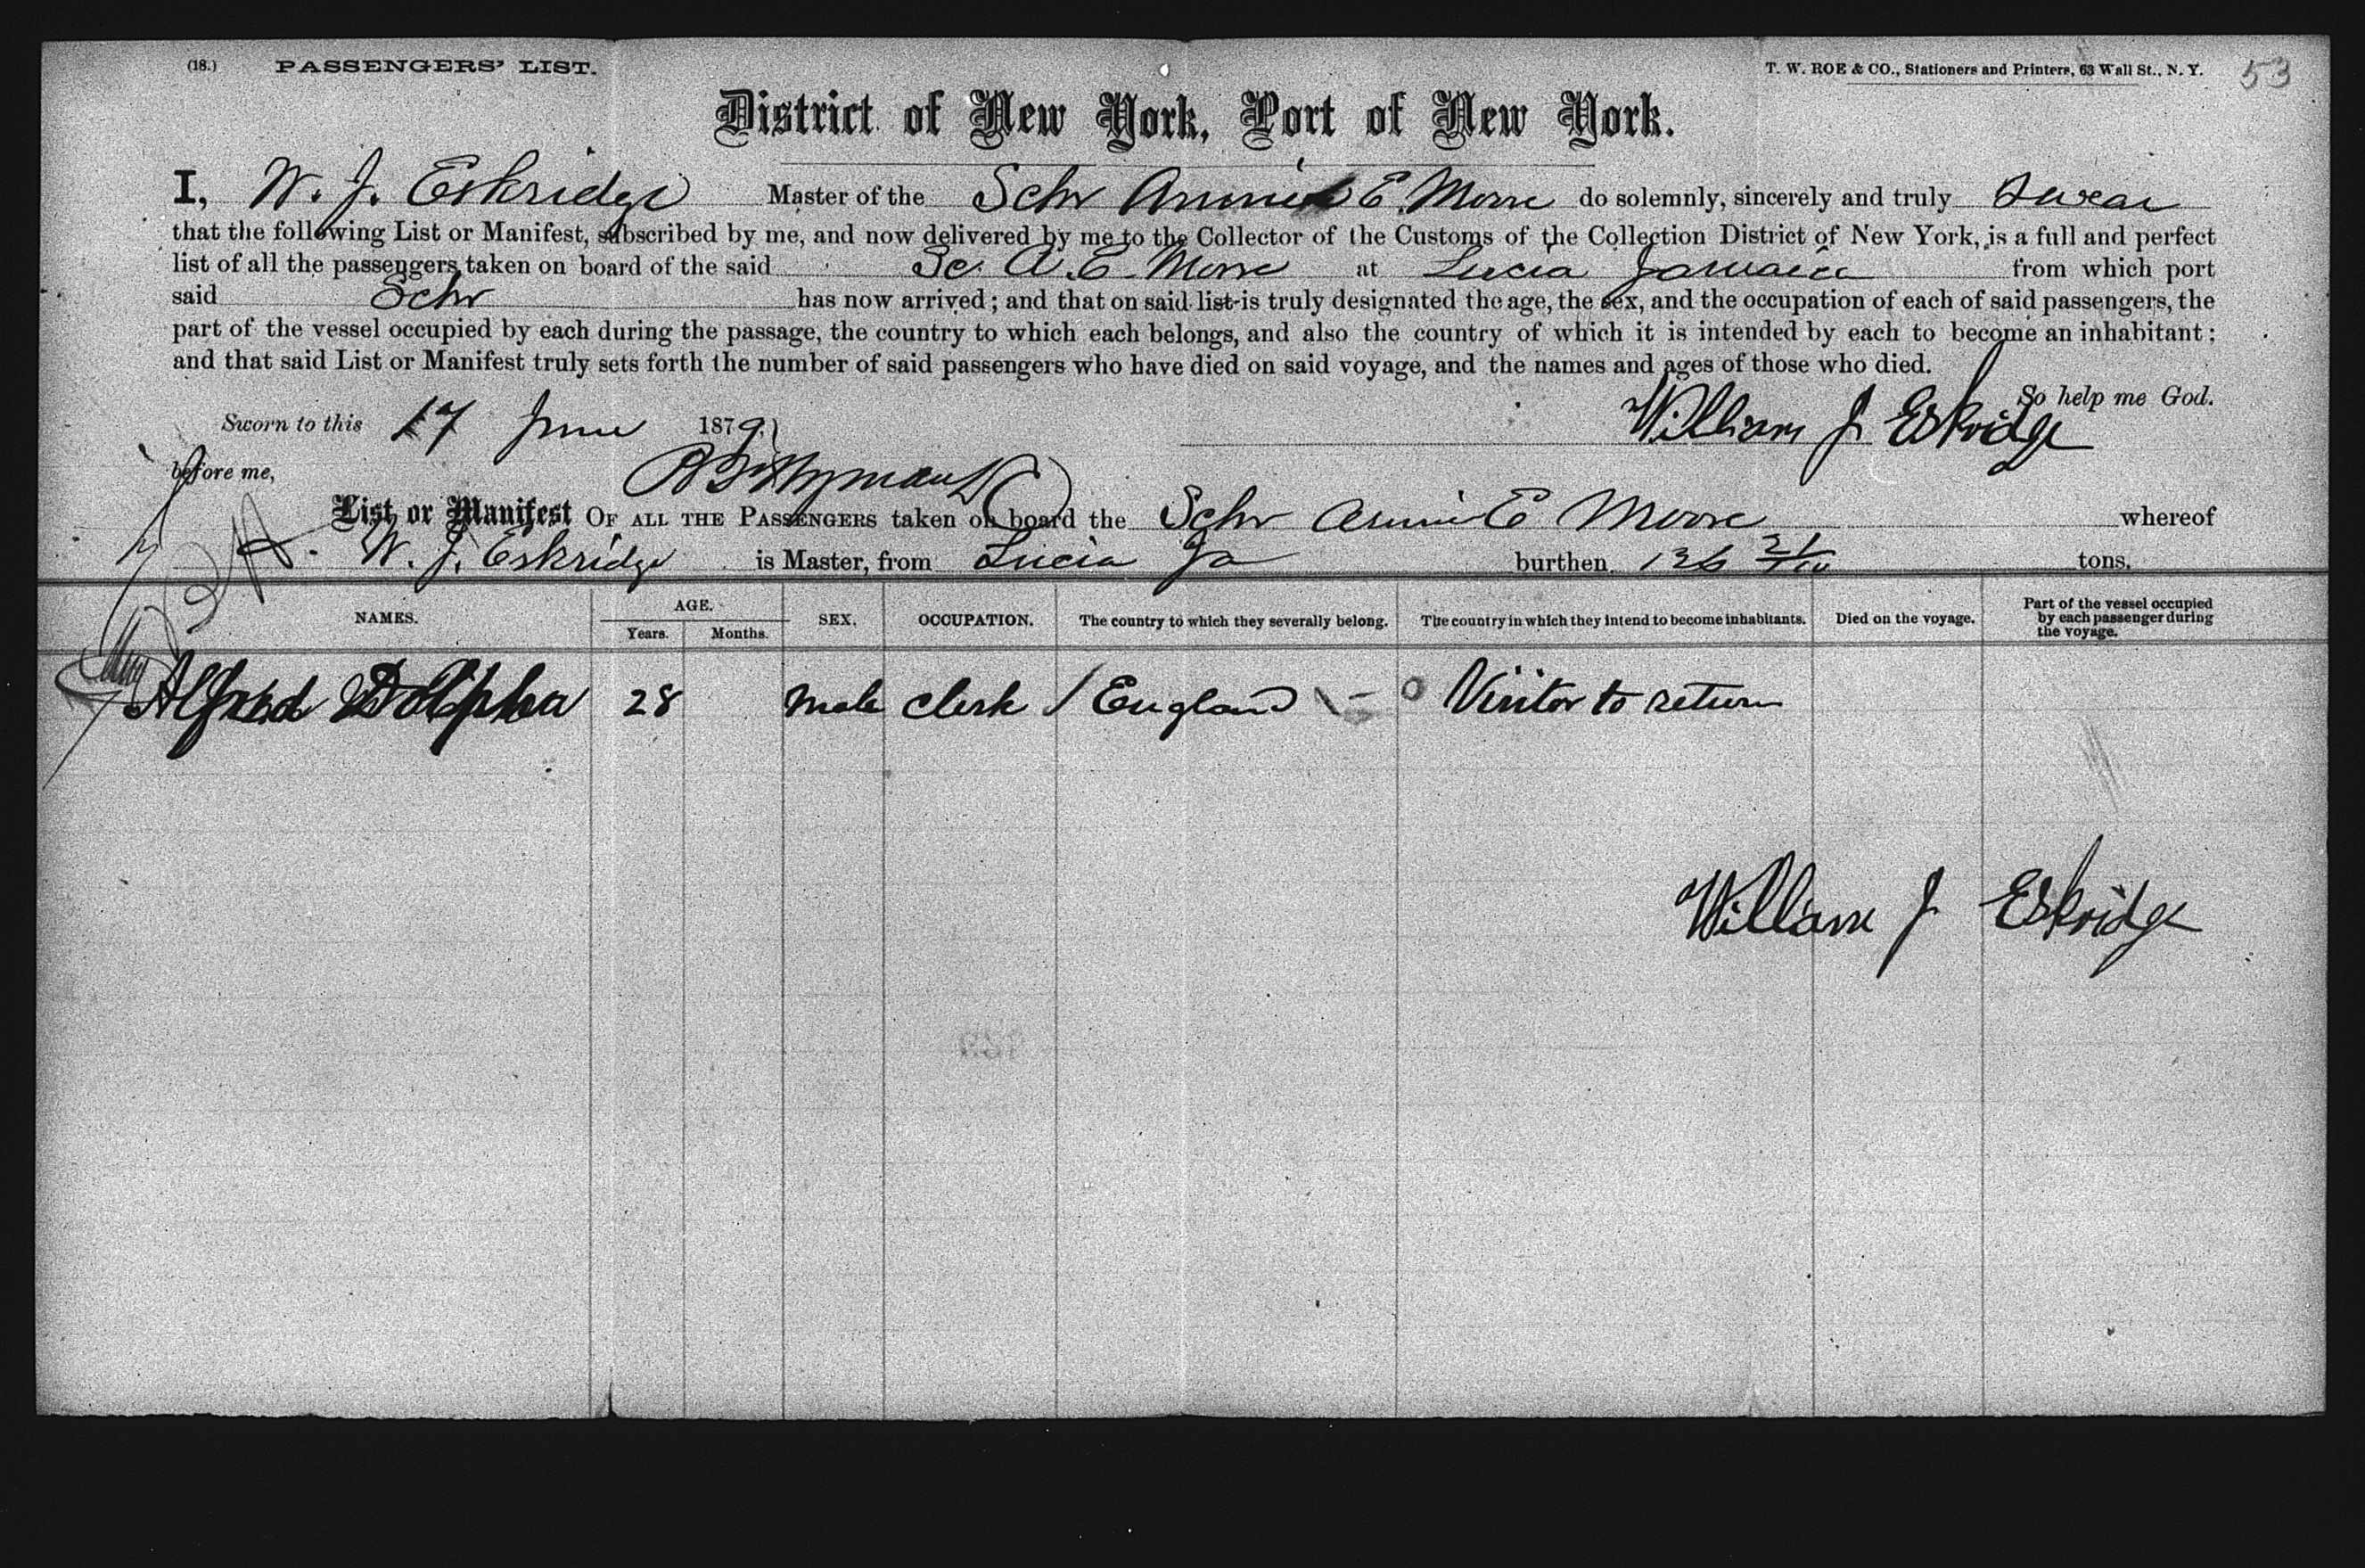 (18.) PASSENGERS' LIST. T. W. ROE & CO., Stationers and Printers, 63 Wall St., N. Y. 53
District of New York, Port of New York.
I, W. J. Eskridge Master of the Schr Annie E. Moore do solemnly, sincerely and truly swear
that the following List or Manifest, subscribed by me, and now delivered by me to the Collector of the Customs of the Collection District of New York, is a full and perfect
list of all the passengers taken on board of the said Sc. A. E. Moore at Lucia Jamaica from which port
said Schr has now arrived; and that on said list is truly designated the age, the sex, and the occupation of each of said passengers, the
part of the vessel occupied by each during the passage, the country to which each belongs, and also the country of which it is intended by each to become an inhabitant;
and that said List or Manifest truly sets forth the number of said passengers who have died on said voyage, and the names and ages of those who died.
So help me God.
Sworn to this 17 June 1879 William J Eskridge
before me,
List or Manifest OF ALL THE PASSENGERS taken on board the Schr Annie E Moore whereof
W. J. Eskridge is Master, from Lucia Ja burthen 136 tons.
NAMES. AGE. Years. Months. SEX. OCCUPATION. The country to which they severally belong. The country in which they intend to become inhabitants. Died on the voyage. Part of the vessel occupied by each passenger during the voyage.
Alfred Dolpha 28 Male Clerk / England Visitor to return
William J Eskridge